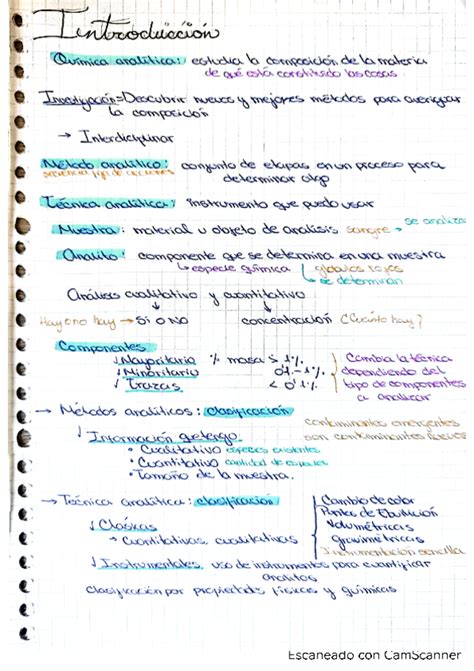 Introducción
Química analítica: estudia la composición de la materia
de qué está constituido las cosas
Investigación = Descubrir nuevos y mejores métodos para averiguar
la composición
→ Interdiciplinar
Método analítico: conjunto de etapas en un proceso para
secuencia fija de acciones determinar algo
Técnica analítica: instrumento que puedo usar
Muestra: material u objeto de analisis sangre → se analiza
Analito: componente que se determina en una muestra
↳ especie química globulos rojos
↳ se determinan
Análisis cualitativo y cuantitativo
Hay o no hay → Si o No concentración (Cuánto hay?
Componentes
↓ Mayoritario % masa > 1% Cambia la técnica
↓ Minoritario 0.1-1% dependiendo del
↓ Trazas < 0.1% tipo de componentes
a analizar
→ Métodos analiticos: clasificación
contaminantes emergentes
↓ Información son contaminantes nuevos
• Cualitativo especies existentes
• Cuantitativo cantidad de especies
• Tamaño de la muestra.
→ Técnica analítica: clasificación Cambio de color
Puntos de Ebullición
↓ Clásicas Volumétricas
→ Cuantitativas, cualitativas gravimétricas
Instrumentación sencilla
↓ Instrumentales, uso de instrumentos para cuantificar
analitos
clasificación por propiedades físicas y químicas
Escaneado con CamScanner